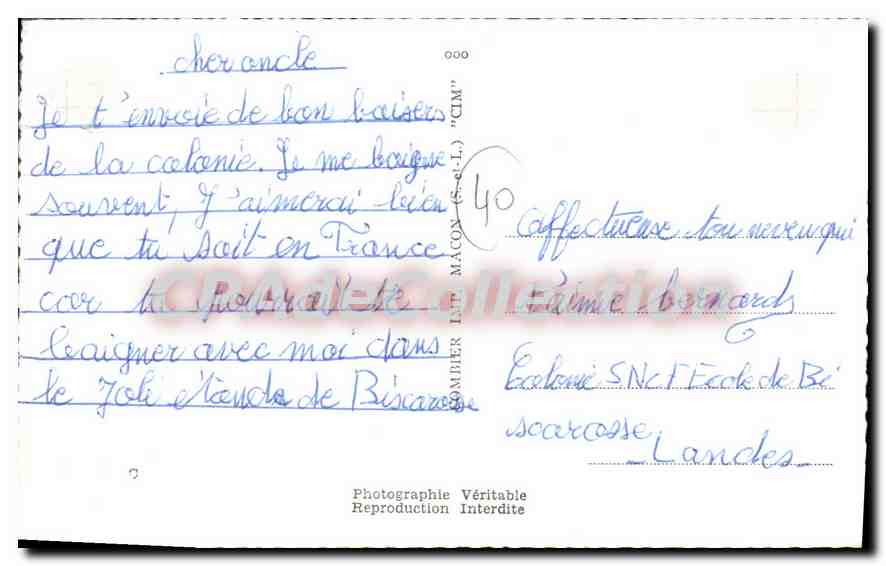 cher oncle
Je t'envoie de bon baisers
de la colonie. Je me baigne
souvent, J'aimerai bien
que tu soit en France
car tu pourrait te
baigner avec moi dans
le Joli étande de Biscarosse
ooo
COMBIER IMP. MACON (S.-et-L.) "CIM"
40
affectueuse ton neveu qui
t'aime bernard
Colonie SNCF Ecole de Bi
scarosse
Landes
Photographie Véritable
Reproduction Interdite
CPAdeCollection